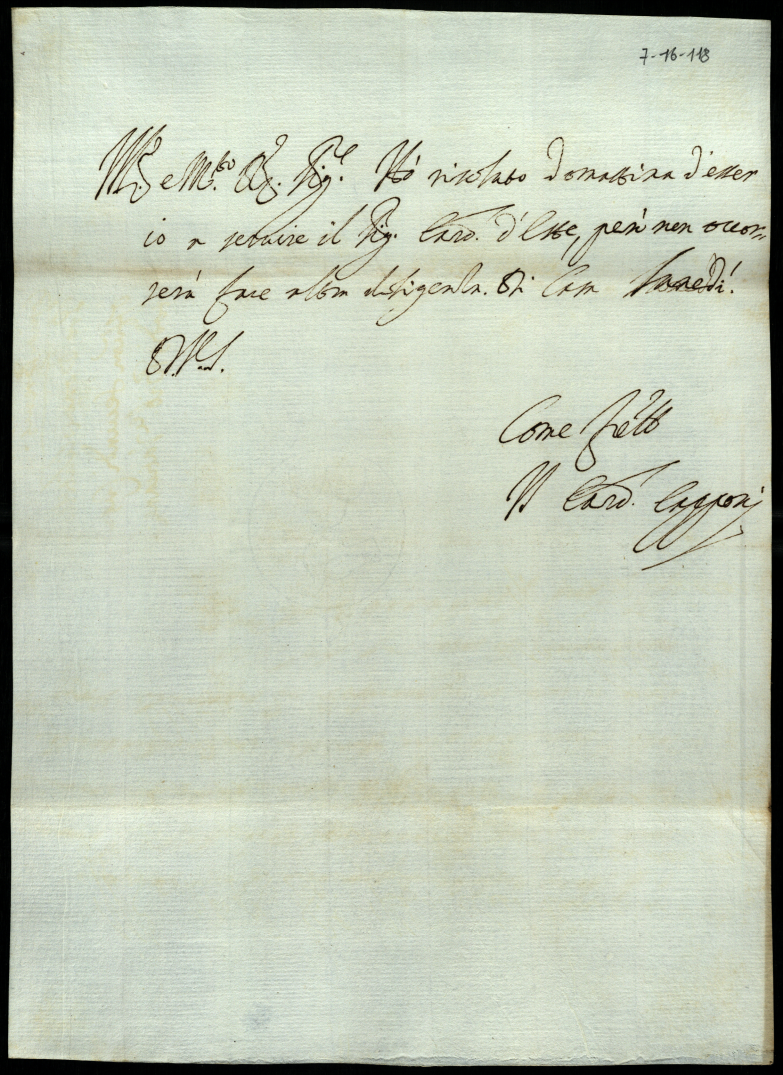 7-16-118
Ill.re e M.to R.do Sig.re Hò risoluto domattina d'esser
io a servire il Sig. Card. d'Este, però non occor-
rerà fare altra diligenza. Di Casa Lunedì.
D.V.S.
Come fratello
Il Card. Capponi